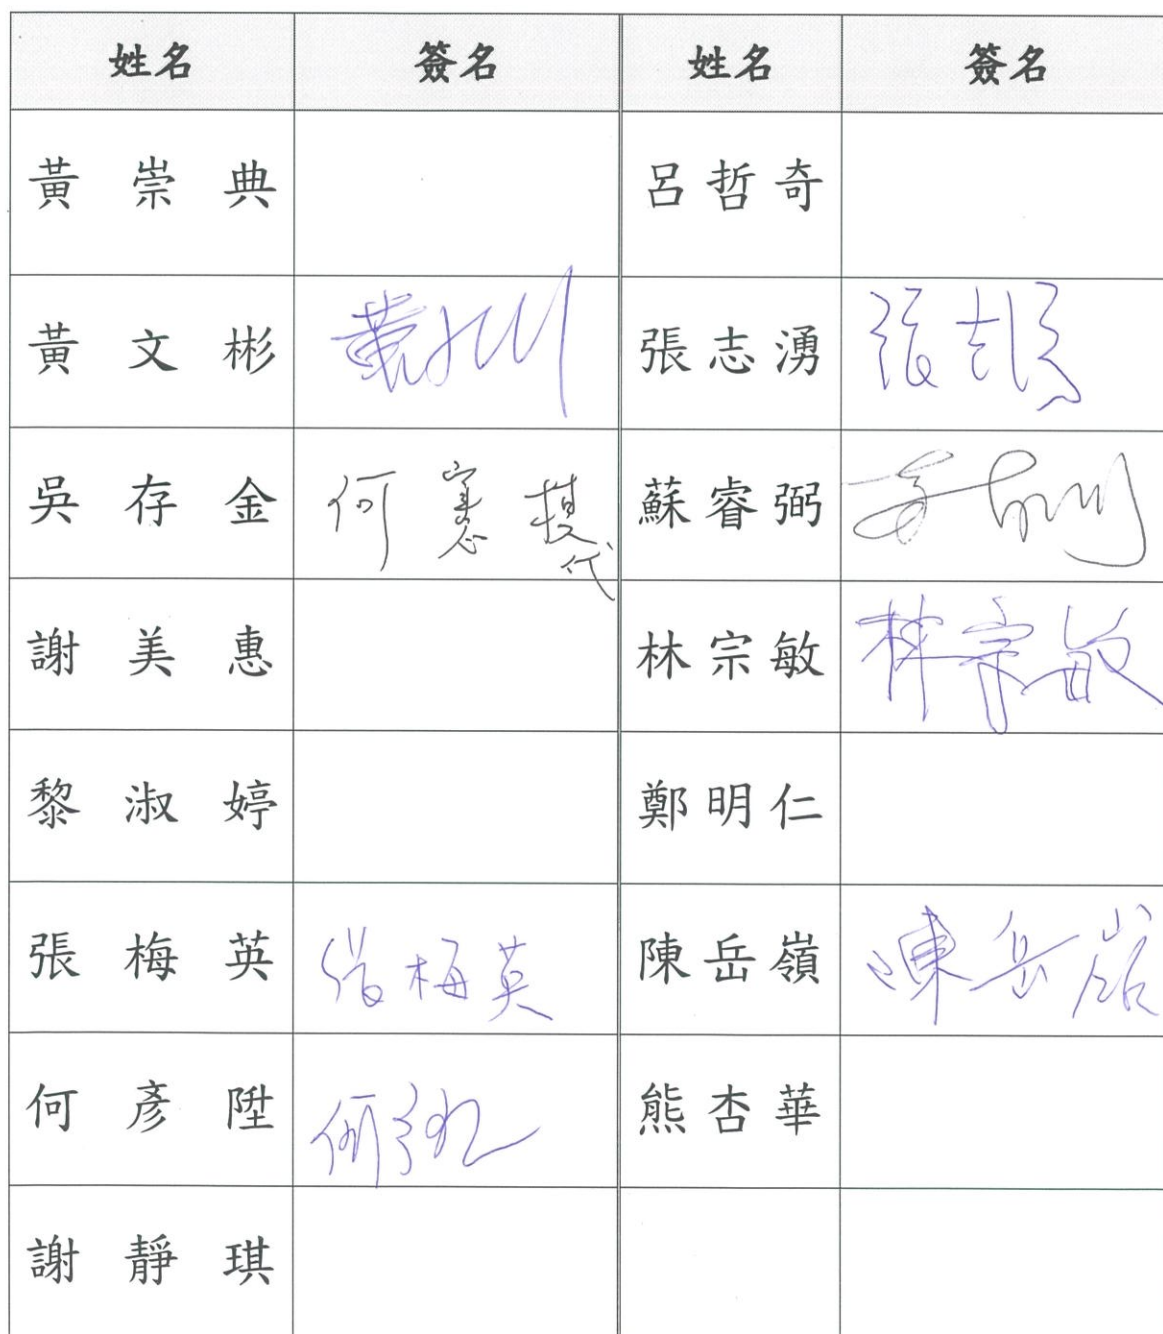 姓名 簽名 姓名 簽名
黃崇典 呂哲奇
黃文彬 張志湧
吳存金 何 代 蘇睿弼
謝美惠 林宗敏 林宗敏
黎淑婷 鄭明仁
張梅英 張梅英 陳岳嶺 陳岳嶺
何彥陞 熊杏華
謝靜琪